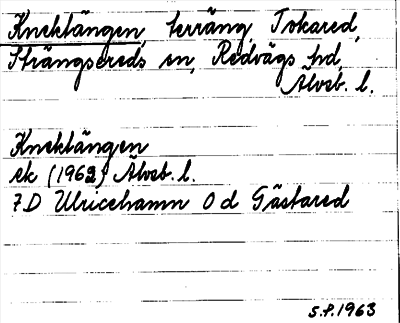 Knektängen, terräng, Tokared,
Strängsereds sn, Redvägs hd,
Älvsb. l.
Knektängen
ek (1962) Älvsb. l.
7D Ulricehamn 0 d Gästared
S.P. 1963